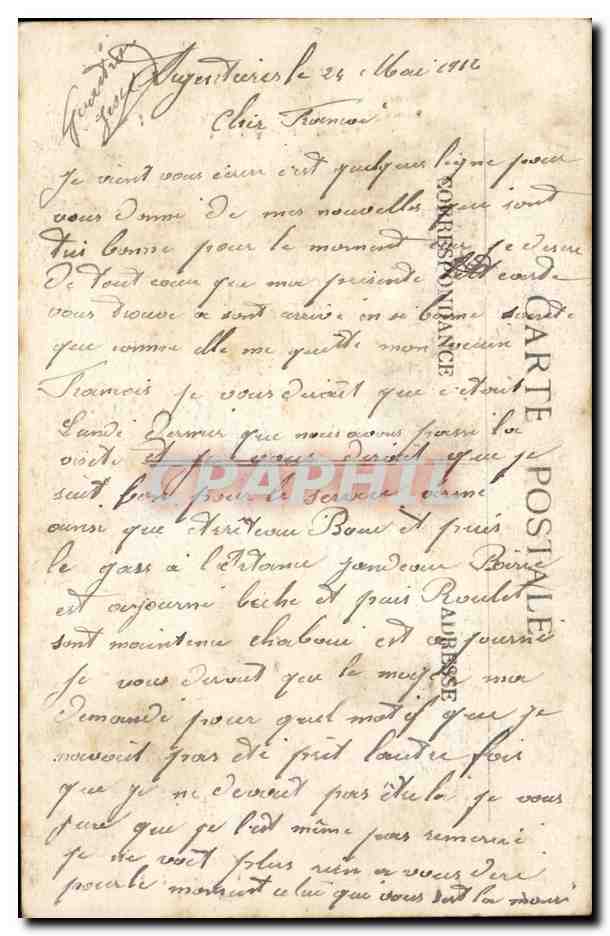 Argentières le 24 Mai 1912
Cher François
Je vient vous écrire c'est quelques ligne pour
vous donné de mes nouvelles que sont
très bonne pour le moment je desire
de tout cœur que ma présente carte
vous trouve a sont arrivé en si bonne
que comme elle me quitte mon
François je vous dirait que c'était
Lundi dernier que nous avons passé la
visite et je vous dirait que je
suit bon pour le service armé
ainsi que et puis
le gass à l'Etang
est ajourné beche et puis Roulet
sont maintenu Chaboui est ajourné
je vous dirait que le major ma
demandé pour quel motif que je
navait pas été prit lautre fois
que je ne devait pas je vous
jure que je l'est même pas remercié
je ne voit plus rien a vous dire
pour le moment celui qui vous sert la main
CORRESPONDANCE
CARTE POSTALE
ADRESSE
CPAPHIL